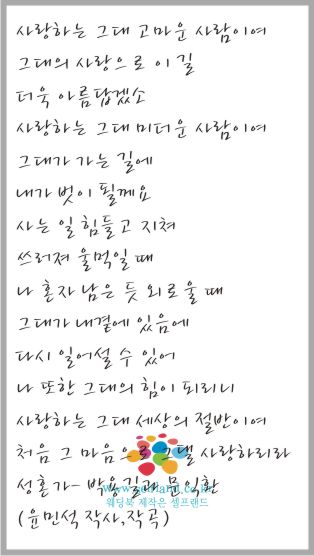 사랑하는 그대 고마운 사람이여
그대의 사랑으로 이 길
더욱 아름답겠소
사랑하는 그대 미더운 사람이여
그대가 가는 길에
내가 벗이 될께요
사는 일 힘들고 지쳐
쓰러져 울먹일 때
나 혼자 남은 듯 외로울 때
그대가 내곁에 있음에
다시 일어설 수 있어
나 또한 그대의 힘이 되리니
사랑하는 그대 세상의 절반이여
처음 그 마음으로 그댈 사랑하리라
성혼가- 박용길과 문익환
웨딩북 제작은 셀프랜드
(윤민석 작사,작곡)